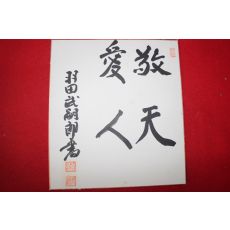 敬天
愛人
羽田武嗣郎書